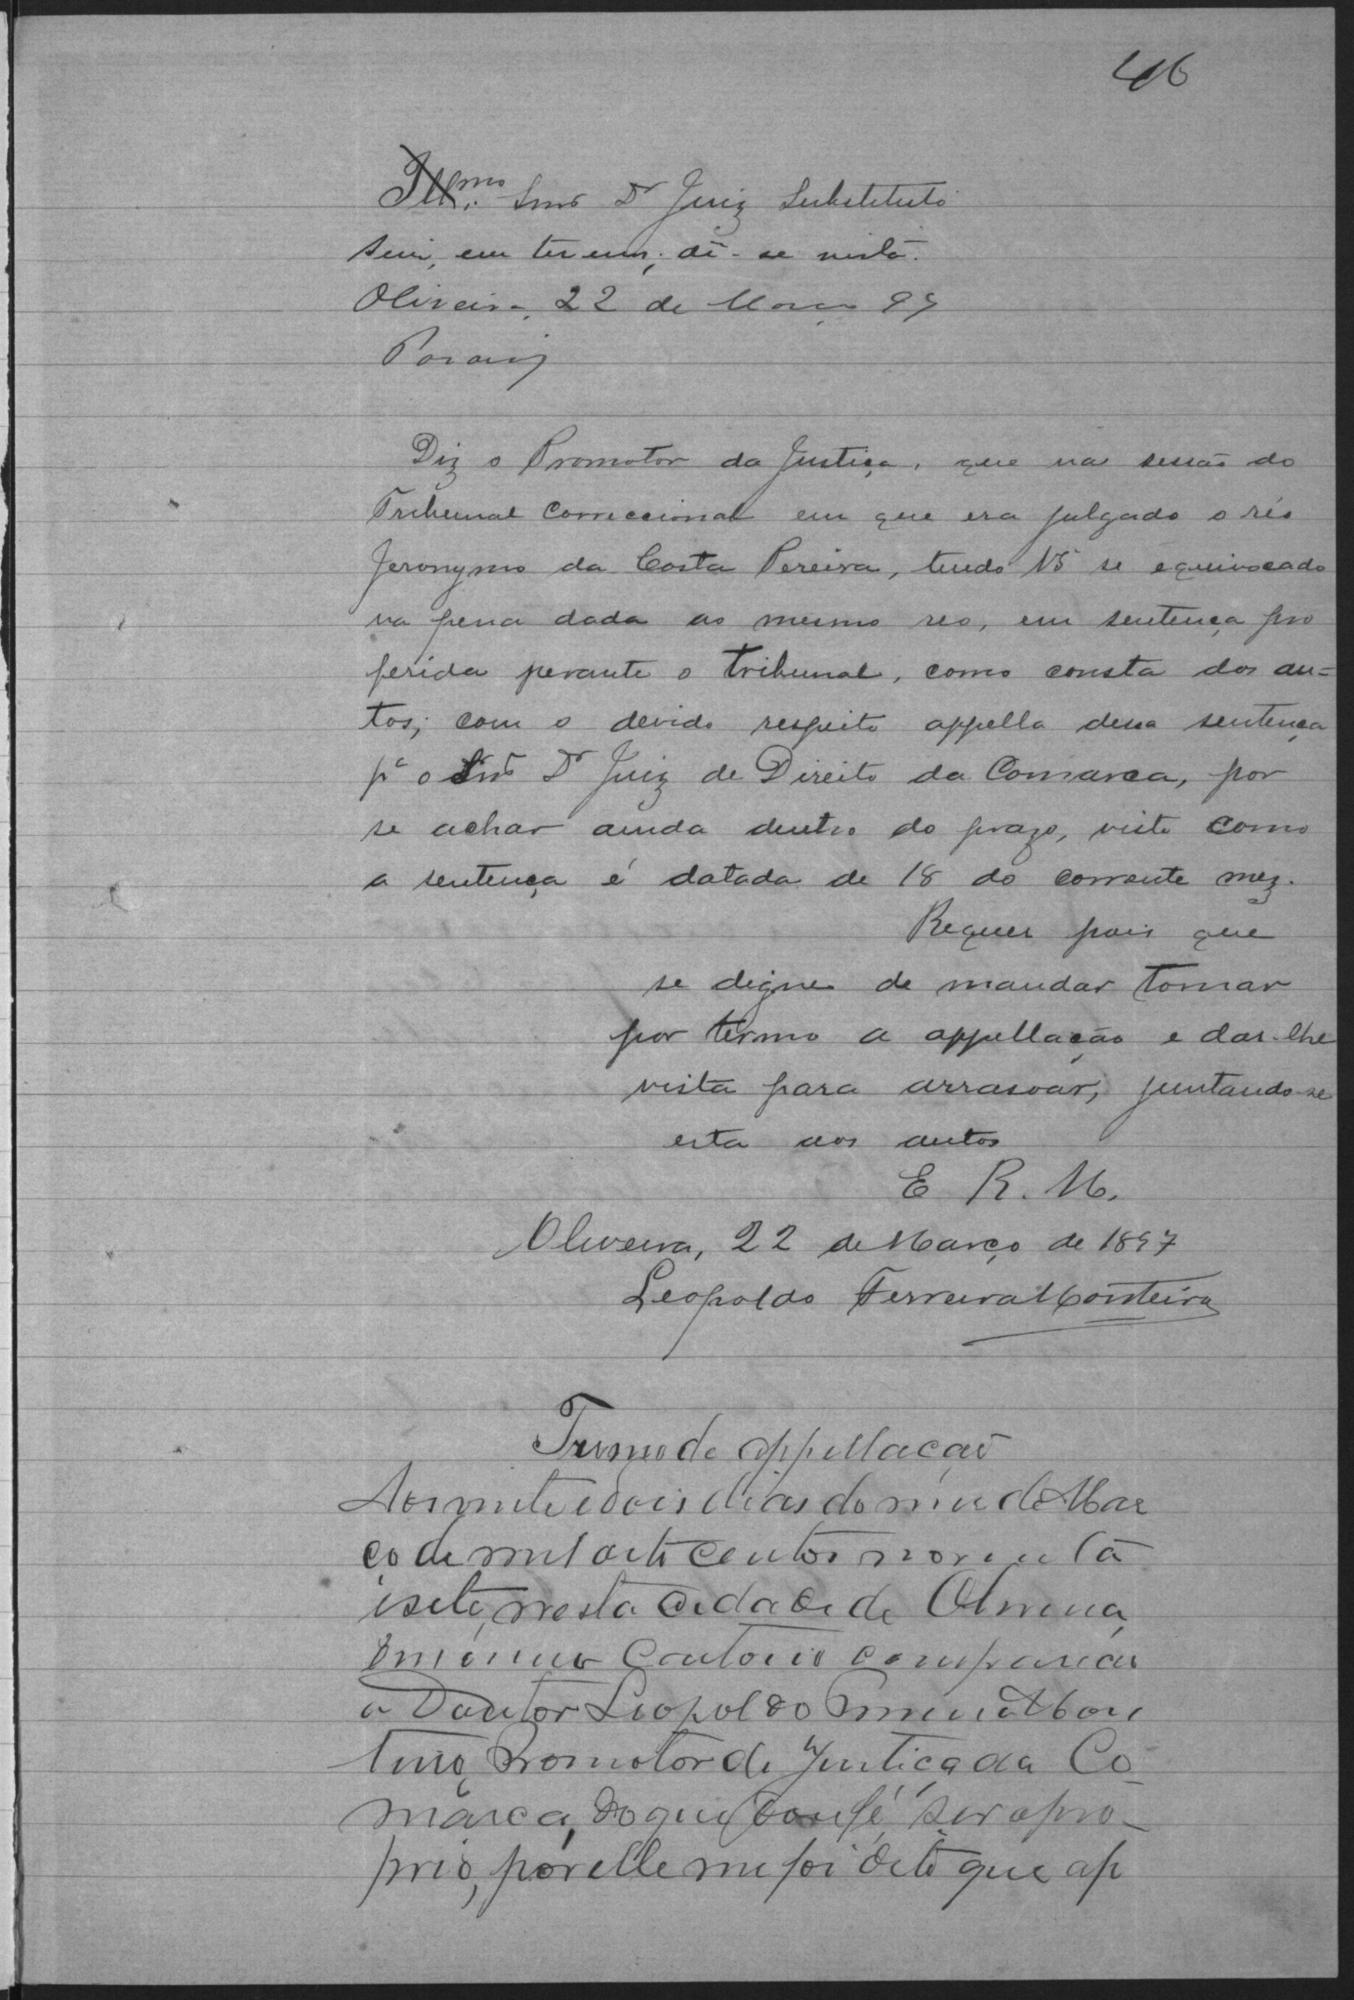 46
Ill.mo Snr Dr Juiz Substituto
Sim, em termos; dê-se vista.
Oliveira, 22 de Março 97
Diz o Promotor da Justiça, que na sessão do
Tribunal Correccional em que era julgado o réo
Jeronymo da Costa Pereira, tendo VS se equivocado
na pena dada ao mesmo reo, em sentença pro
ferida perante o tribunal, como consta dos au=
tos; com o devido respeito appella dessa sentença
pa o Snr Dr Juiz de Direito da Comarca, por
se achar ainda dentro do prazo, visto como
a sentença é datada de 18 do corrente mez.
Requer pois que
se digne de mandar tomar
por termo a appellação e dar-lhe
vista para arrasoar, juntando-se
esta aos autos
E R. M.
Oliveira, 22 de Março de 1897
Leopoldo Ferreira Monteiro
Termo de appellação
Aos vinte e dois dias do mez de Mar
ço de mil oito centos noventa
e sete, nesta cidade de Oliveira,
em meu Cartorio compareceu
o Doutor Leopoldo Ferreira Mon
teiro, Promotor de Justiça da Co-
marca, do que dou fé, ser o pro-
prio, por elle me foi dito que ap